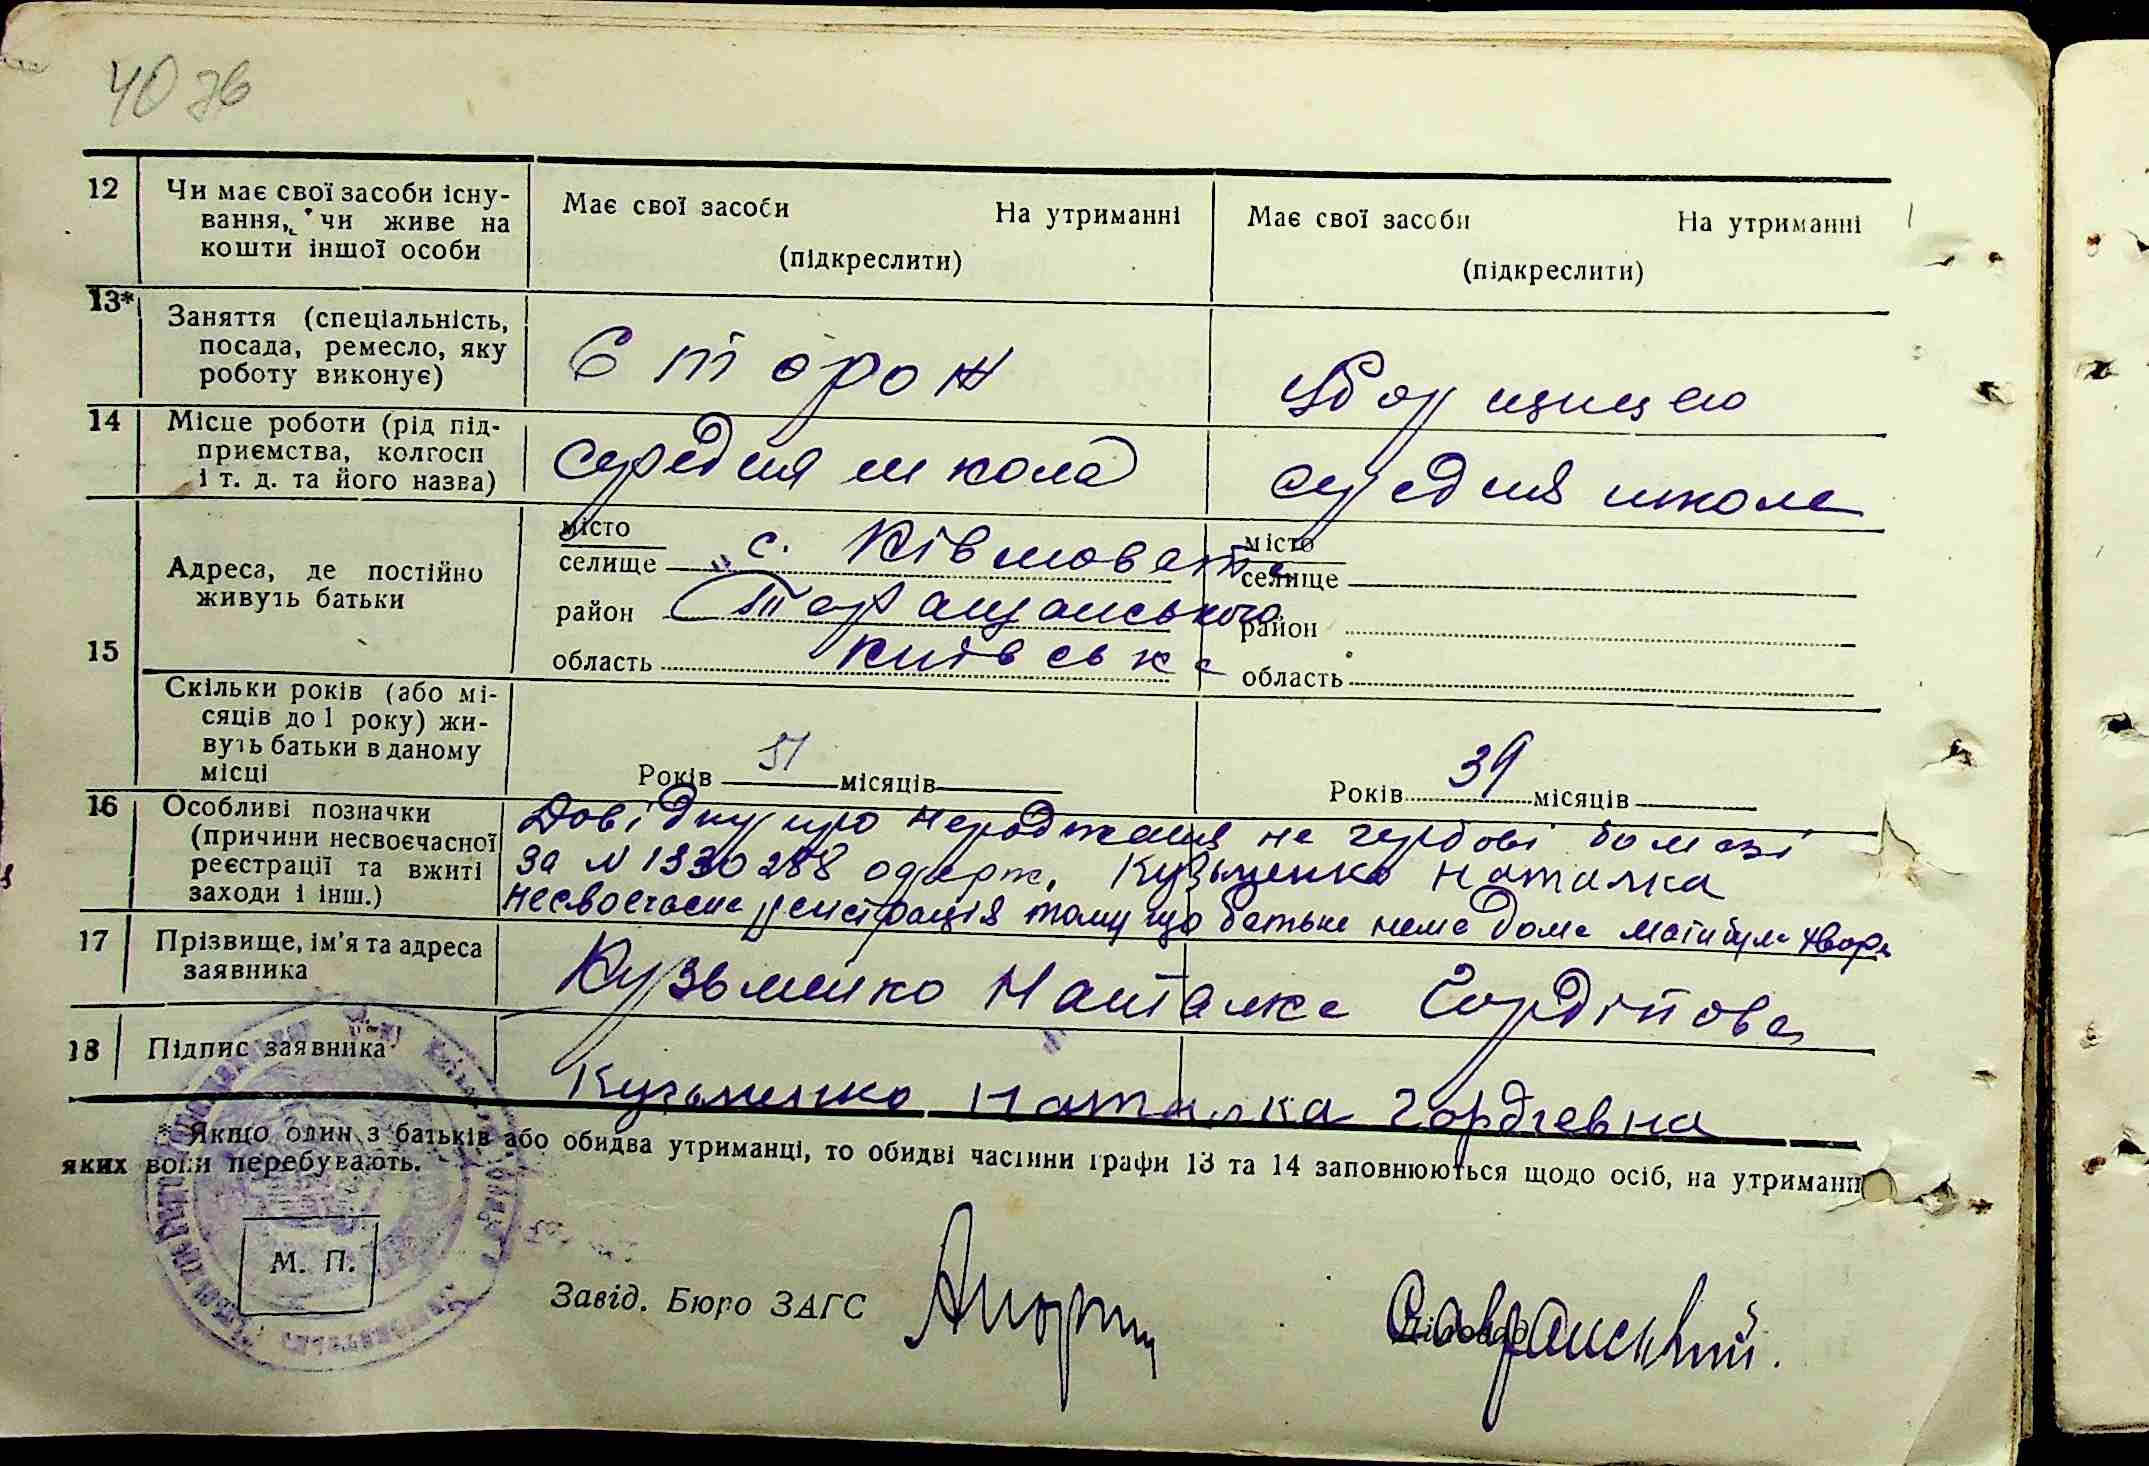 40 зв
12 Чи має свої засоби існу-
вання, чи живе на
кошти іншої особи
Має свої засоби На утриманні
(підкреслити)
Має свої засоби На утриманні
(підкреслити)
13* Заняття (спеціальність,
посада, ремесло, яку
роботу виконує)
Сторож
Уборщицею
14 Місце роботи (рід під-
приємства, колгосп
і т. д. та його назва)
середня школа
середня школа
15 Адреса, де постійно
живуть батьки
місто
селище с. Ківшовата
район Таращанського
область Київська
місто
селище
район
область
Скільки років (або мі-
сяців до 1 року) жи-
вуть батьки в даному
місці
Років 51 місяців
Років 39 місяців
16 Особливі позначки
(причини несвоєчасної
реєстрації та вжиті
заходи і інш.)
Довідку про народження на гербові бомазі
за N 1330288 одерж. Кузьменко Наталка
несвоєчасна реистрація тому що батька нема дома мати була хвора
17 Прізвище, ім'я та адреса
заявника
Кузьменко Наталка Гордіївна
18 Підпис заявника
Кузьменко Наталка Гордіевна
* Якщо один з батьків або обидва утриманці, то обидві частини графи 13 та 14 заповнюються щодо осіб, на утриманні
яких вони перебувають.
М. П.
Завід. Бюро ЗАГС
Діловод